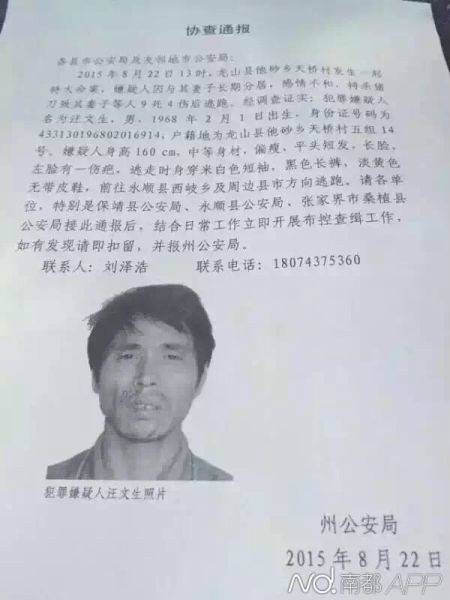 协查通报
各县市公安局及友邻地市公安局：
2015年8月22日13时，龙山县他砂乡天桥村发生一起
特大命案，嫌疑人因与其妻子长期分居，感情不和，持杀猪
刀致其妻子等人9死4伤后逃跑。经调查证实：犯罪嫌疑人
名为汪文生，男，1968年2月1日出生，身份证号码为
433130196802016914，户籍地为龙山县他砂乡天桥村五组14
号。嫌疑人身高160cm，中等身材，偏瘦，平头短发，长脸，
左脸有一伤疤，逃走时身穿米白色短袖，黑色长裤，淡黄色
无带皮鞋，前往永顺县西岐乡及周边县市方向逃跑。请各单
位，特别是保靖县公安局、永顺县公安局、张家界市桑植县
公安局接此通报后，结合日常工作立即开展布控查缉工作，
如有发现请即扣留，并报州公安局。
联系人：刘泽浩 联系电话：18074375360
犯罪嫌疑人汪文生照片
州公安局
2015年8月22日
ND.南都APP